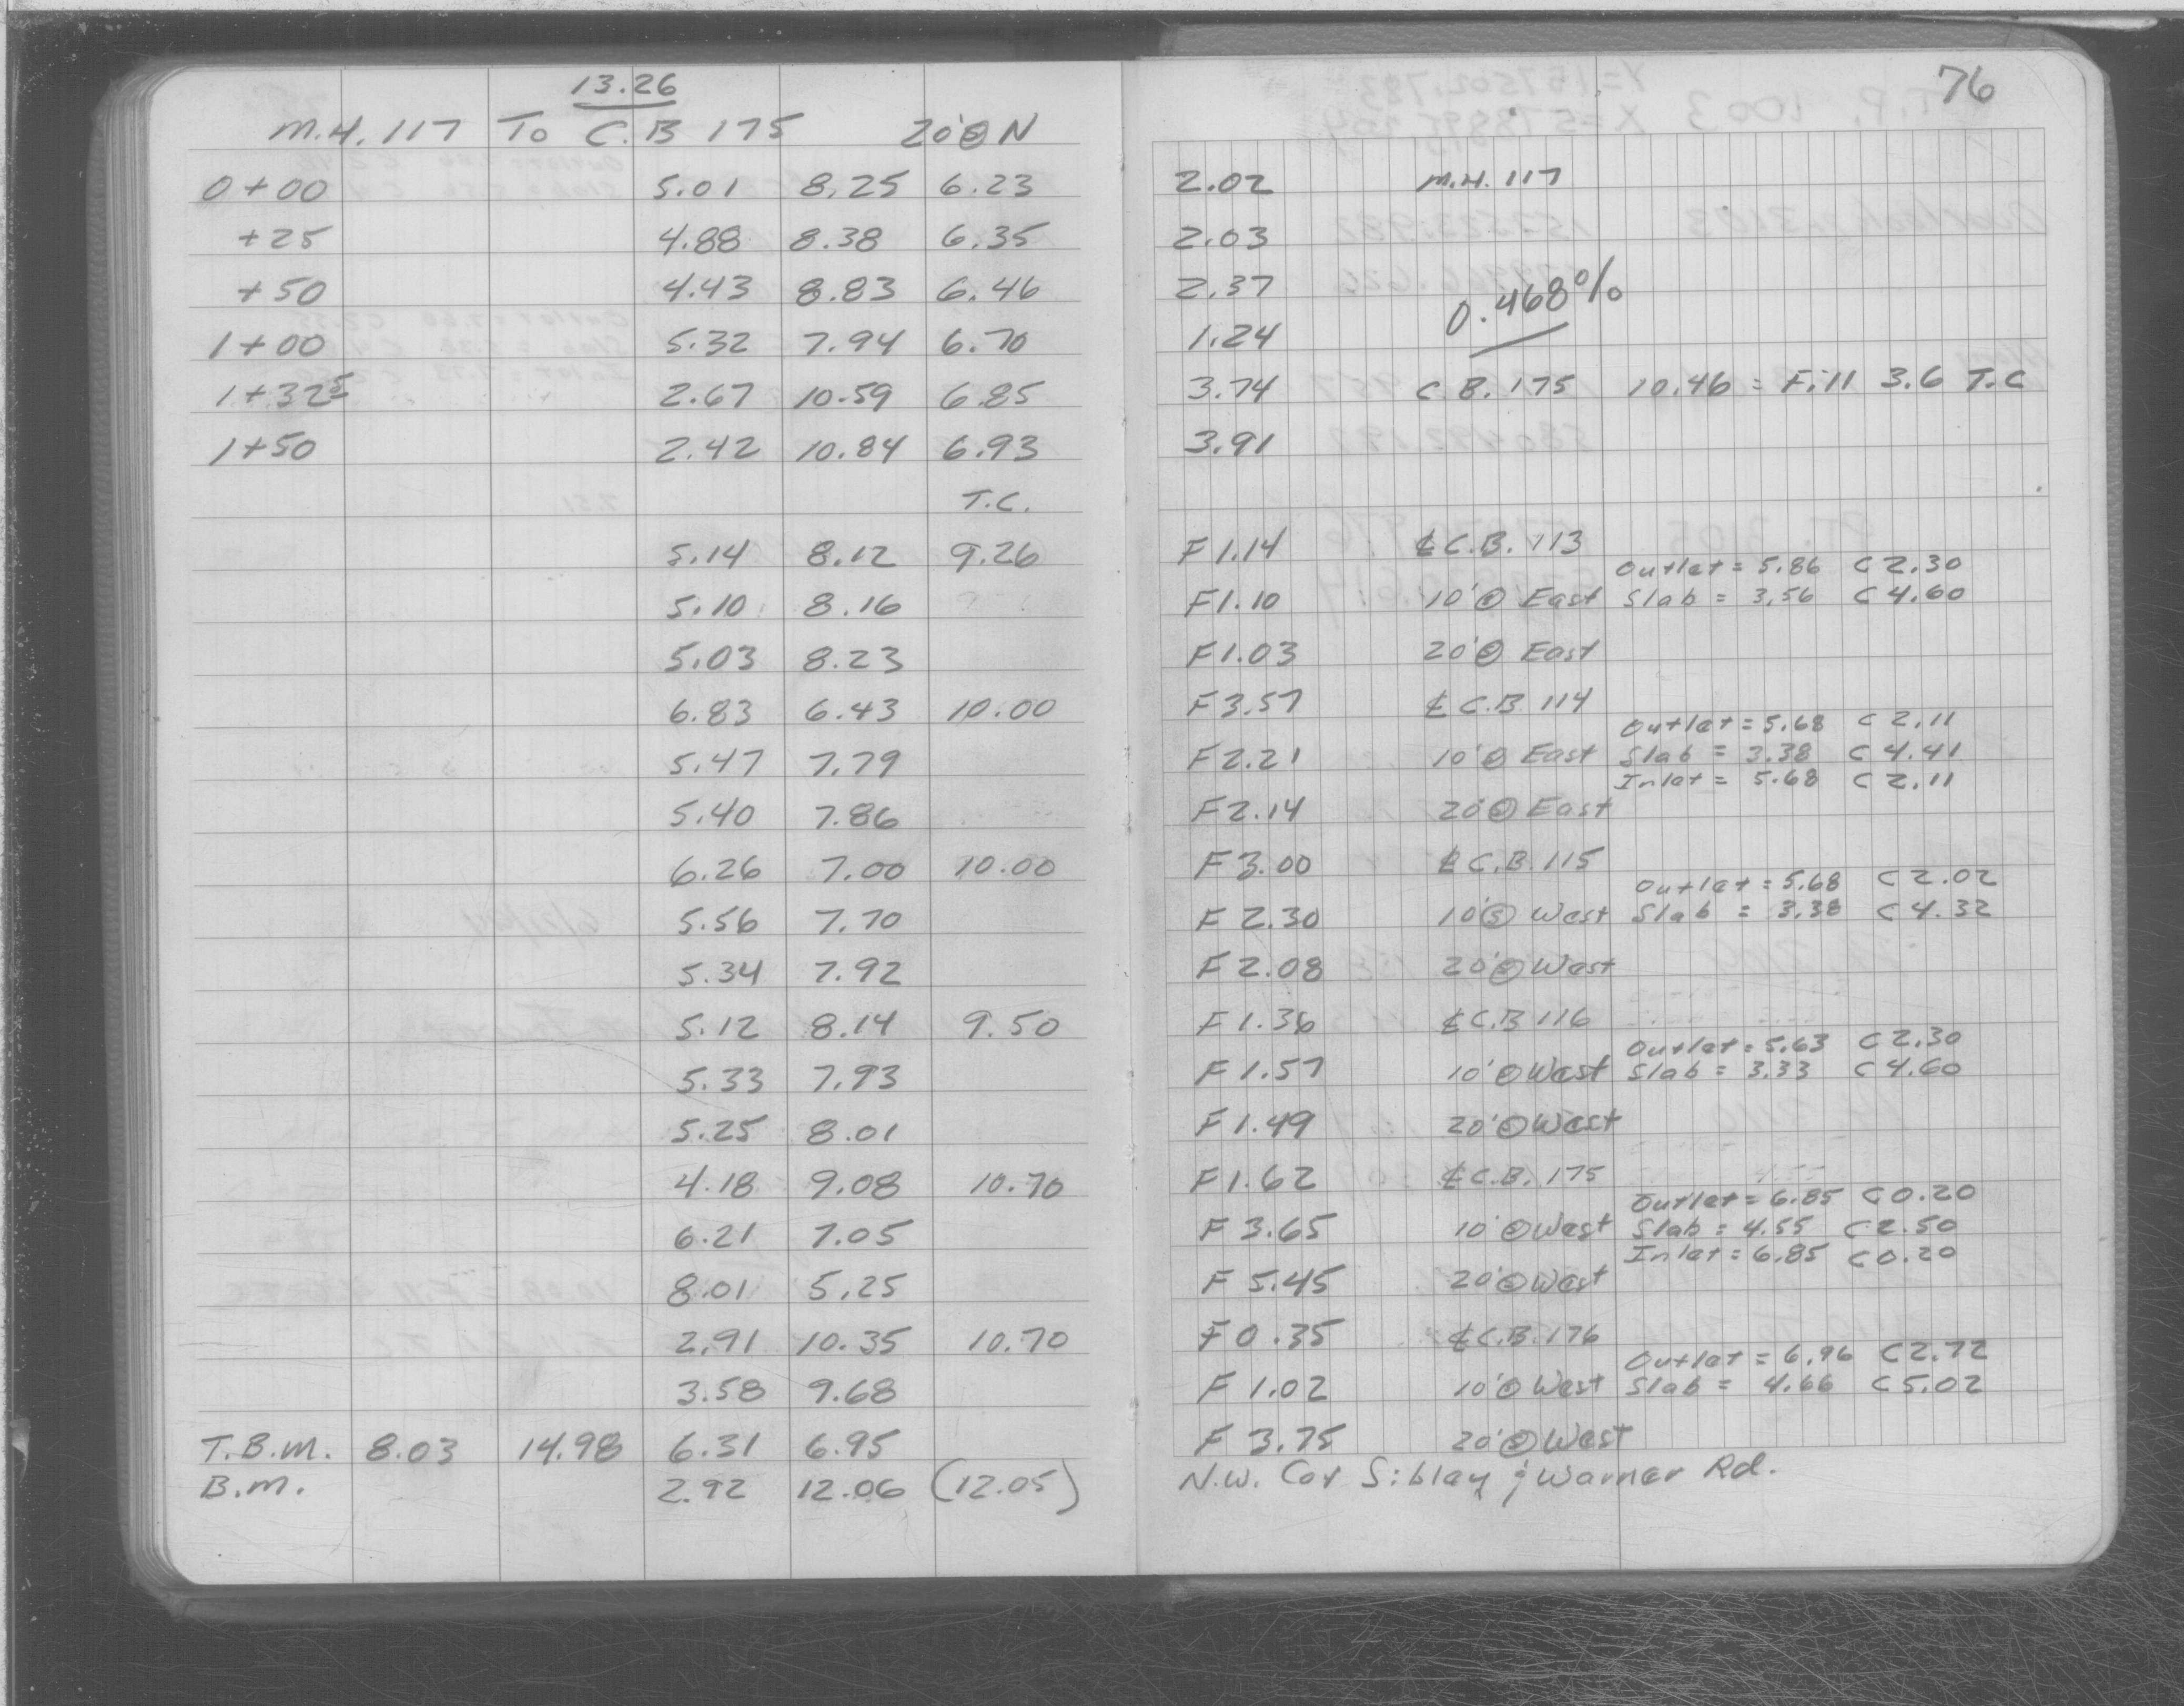 76
13.26
M.H. 117 To C.B 175 20'ⓞ N
0+00 5.01 8.25 6.23 2.02 M.H. 117
+25 4.88 8.38 6.35 2.03
+50 4.43 8.83 6.46 2.37
0.468%
1+00 5.32 7.94 6.70 1.24
1+32⁵ 2.67 10.59 6.85 3.74 C.B. 175 10.46 = Fill 3.6 T.C
1+50 2.42 10.84 6.93 3.91
T.C.
5.14 8.12 9.26 F 1.14 ℄ C.B. 113
Outlet = 5.86 C 2.30
5.10 8.16 F 1.10 10'ⓞ East Slab = 3.56 C 4.60
5.03 8.23 F 1.03 20'ⓞ East
6.83 6.43 10.00 F 3.57 ℄ C.B. 114
Outlet = 5.68 C 2.11
5.47 7.79 F 2.21 10'ⓞ East Slab = 3.38 C 4.41
Inlet = 5.68 C 2.11
5.40 7.86 F 2.14 20'ⓞ East
6.26 7.00 10.00 F 3.00 ℄ C.B. 115
Outlet = 5.68 C 2.02
5.56 7.70 F 2.30 10'ⓞ West Slab = 3.38 C 4.32
5.34 7.92 F 2.08 20'ⓞ West
5.12 8.14 9.50 F 1.36 ℄ C.B 116
Outlet = 5.63 C 2.30
5.33 7.93 F 1.57 10'ⓞ West Slab = 3.33 C 4.60
5.25 8.01 F 1.49 20'ⓞ West
4.18 9.08 10.70 F 1.62 ℄ C.B. 175
Outlet = 6.85 C 0.20
6.21 7.05 F 3.65 10'ⓞ West Slab = 4.55 C 2.50
Inlet = 6.85 C 0.20
8.01 5.25 F 5.45 20'ⓞ West
2.91 10.35 10.70 F 0.35 ℄ C.B. 176
Outlet = 6.96 C 2.72
3.58 9.68 F 1.02 10'ⓞ West Slab = 4.66 C 5.02
T.B.M. 8.03 14.98 6.31 6.95 F 3.75 20'ⓞ West
B.M. 2.92 12.06 (12.05) N.W. Cor Sibley & Warner Rd.